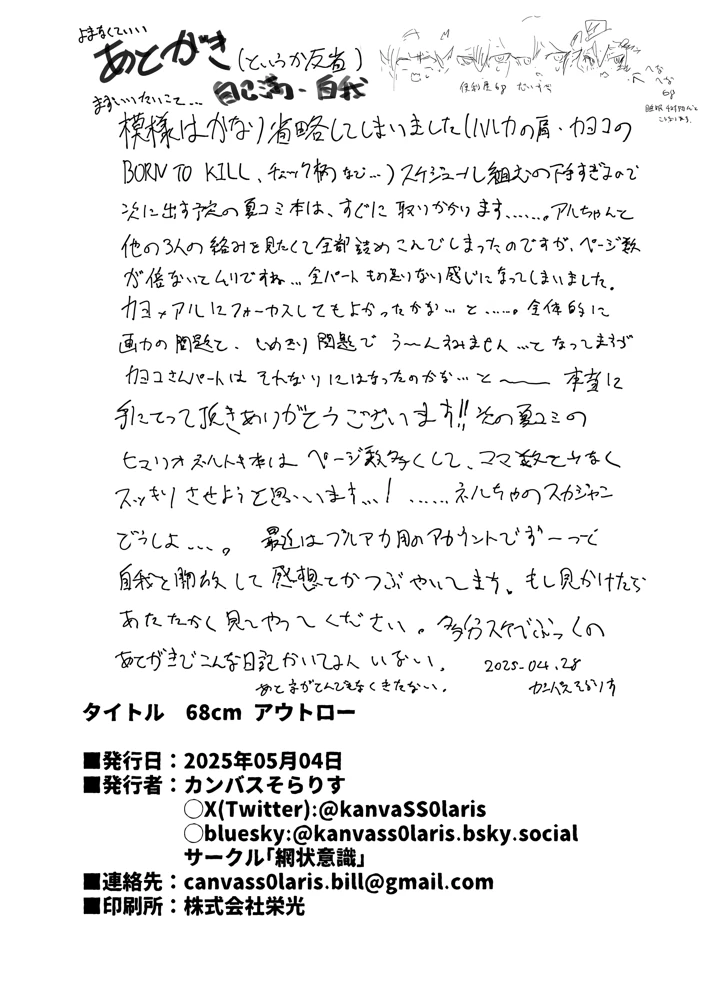 よまなくていい
あとがき(というか反省)
自己満・自我
まずいいたいこと…
便利屋68 だいすき
へな
へな
68
模様はかなり省略してしまいました(ハルカの肩・カヨコの
BORN TO KILL、チェック柄など…)スケジュール組むの下手すぎるので
次に出す予定の夏コミ本は、すぐに取りかかります……。アルちゃんと
他の3人の絡みを見たくて全部詰めこんでしまったのですが、ページ数
が倍ないとムリですね…全パートもの足りない感じになってしまいました。
カヨ×アルにフォーカスしてもよかったかな…と……。全体的に
画力の問題と、しめきり問題でう〜んすみません…となってますが
カヨコさんパートはそれなりにはなったのかな…と〜 本当に
手にとって頂きありがとうございます!!次の夏コミの
ヒマリ
本はページ数多くして、コマ数を少なく
スッキリさせようと思います…!……ネルちゃんのスカジャン
どうしよ…。最近はブルアカ用のアカウントでずーっと
自我を開放して感想とかつぶやいてます。もし見かけたら
あたたかく見てやってください。多分スケベぶっくの
あとがきでこんな日記かいてる人いない。 2025-04.28
あと字がとんでもなくきたない。 カンバスそらりす
タイトル 68cm アウトロー
■発行日:2025年05月04日
■発行者:カンバスそらりす
○X(Twitter):@kanvaSS0laris
○bluesky:@kanvass0laris.bsky.social
サークル「網状意識」
■連絡先:canvass0laris.bill@gmail.com
■印刷所:株式会社栄光